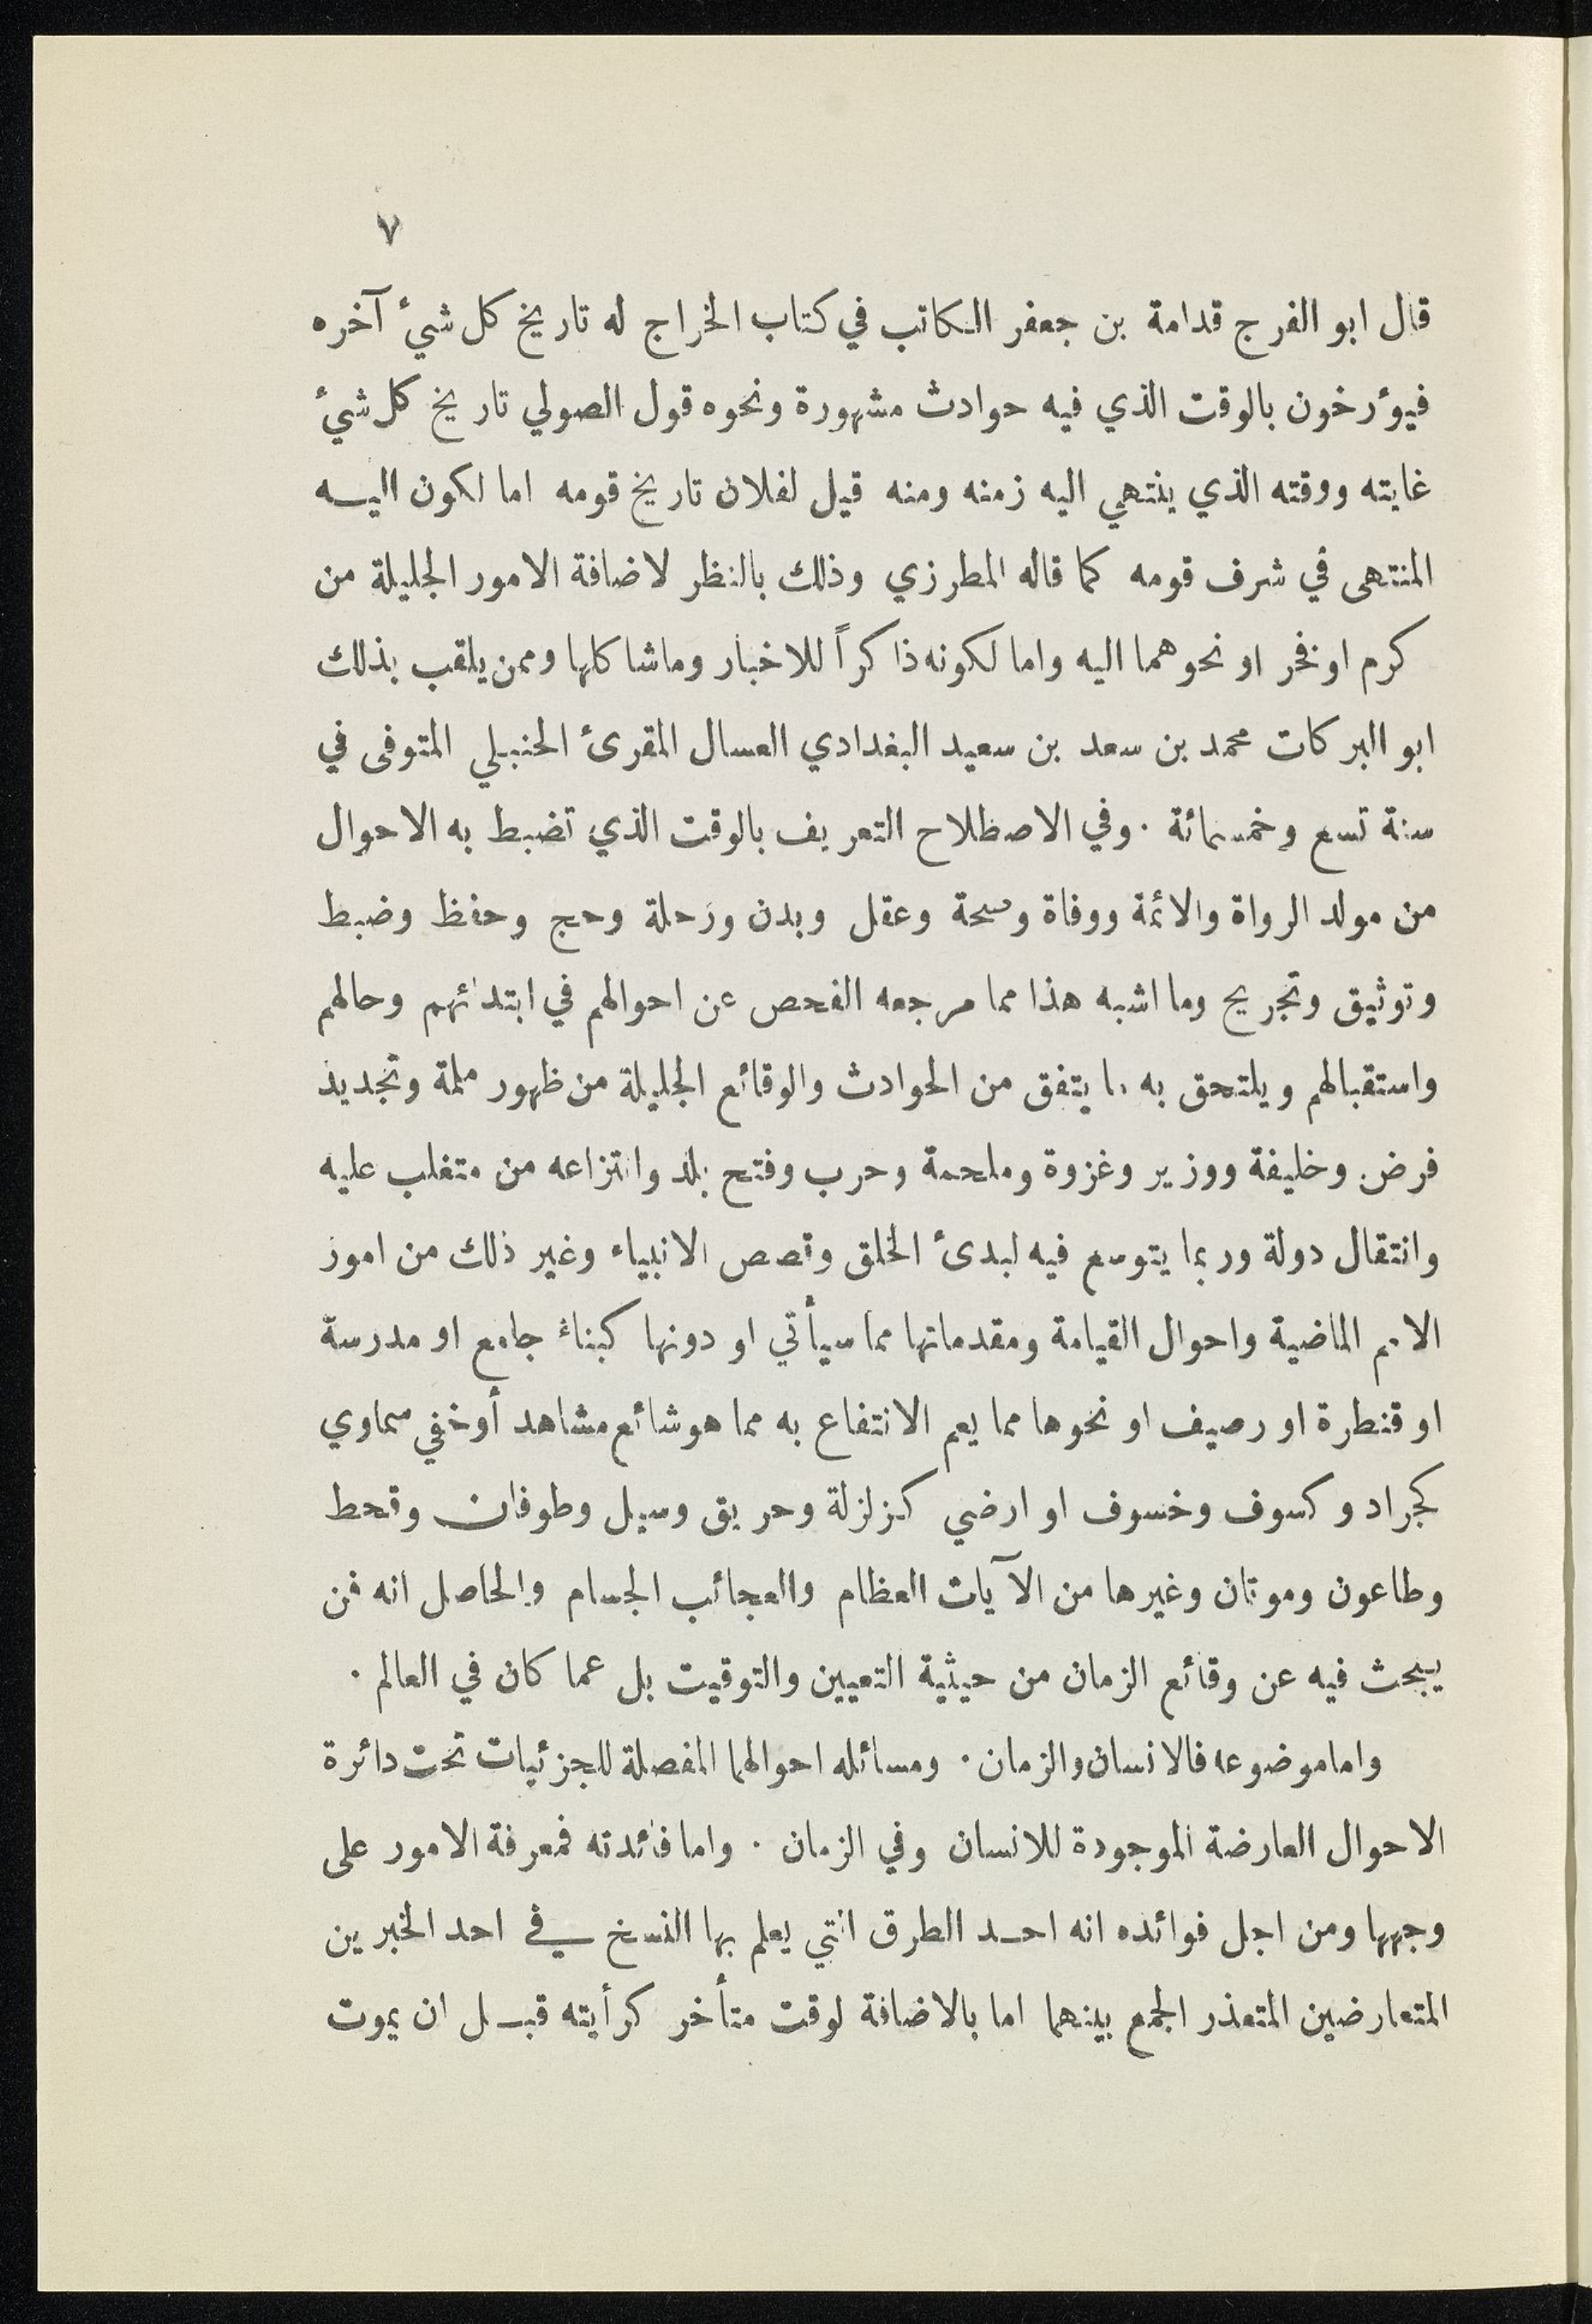 ٧
قال ابو الفرج قدامة بن جعفر الكاتب في كتاب الخراج له تاريخ كل شئ آخره
فيؤرخون بالوقت الذي فيه حوادث مشهورة ونحوه قول الصولي تاريخ كل شئ
غايته ووقته الذي ينتهي اليه زمنه ومنه قيل لفلان تاريخ قومه اما لكون اليه
المنتهى في شرف قومه كما قاله المطرزي وذلك بالنظر لاضافة الامور الجليلة من
كرم او فخر او نحوهما اليه واما لكونه ذاكراً للاخبار وماشاكلها وممن يلقب بذلك
ابو البركات محمد بن سعد بن سعيد البغدادي العسال المقرئ الحنبلي المتوفى في
سنة تسع وخمسمائة . وفي الاصطلاح التعريف بالوقت الذي تضبط به الاحوال
من مولد الرواة والائمة ووفاة وصحة وعقل وبدن ورحلة وحج وحفظ وضبط
وتوثيق وتجريح وما اشبه هذا مما مرجعه الفحص عن احوالهم في ابتدائهم وحالهم
واستقبالهم ويلتحق به ما يتفق من الحوادث والوقائع الجليلة من ظهور ملمة وتجديد
فرض وخليفة ووزير وغزوة وملحمة وحرب وفتح بلد وانتزاعه من متغلب عليه
وانتقال دولة وربما يتوسع فيه لبدئ الخلق وقصص الانبياء وغير ذلك من امور
الامم الماضية واحوال القيامة ومقدماتها مما سيأتي او دونها كبناء جامع او مدرسة
او قنطرة او رصيف او نحوها مما يعم الانتفاع به مما هو شائع مشاهد أو خفي سماوي
كجراد وكسوف وخسوف او ارضي كزلزلة وحريق وسيل وطوفان وقحط
وطاعون وموتان وغيرها من الآيات العظام والعجائب الجسام والحاصل انه فن
يبحث فيه عن وقائع الزمان من حيثية التعيين والتوقيت بل عما كان في العالم .
واما موضوعه فالانسان والزمان . ومسائله احوالهما المفصلة للجزئيات تحت دائرة
الاحوال العارضة الموجودة للانسان وفي الزمان . واما فائدته فمعرفة الامور على
وجهها ومن اجل فوائده انه احد الطرق التي يعلم بها النسخ في احد الخبرين
المتعارضين المتعذر الجمع بينهما اما بالاضافة لوقت متأخر كرأيته قبل ان يموت